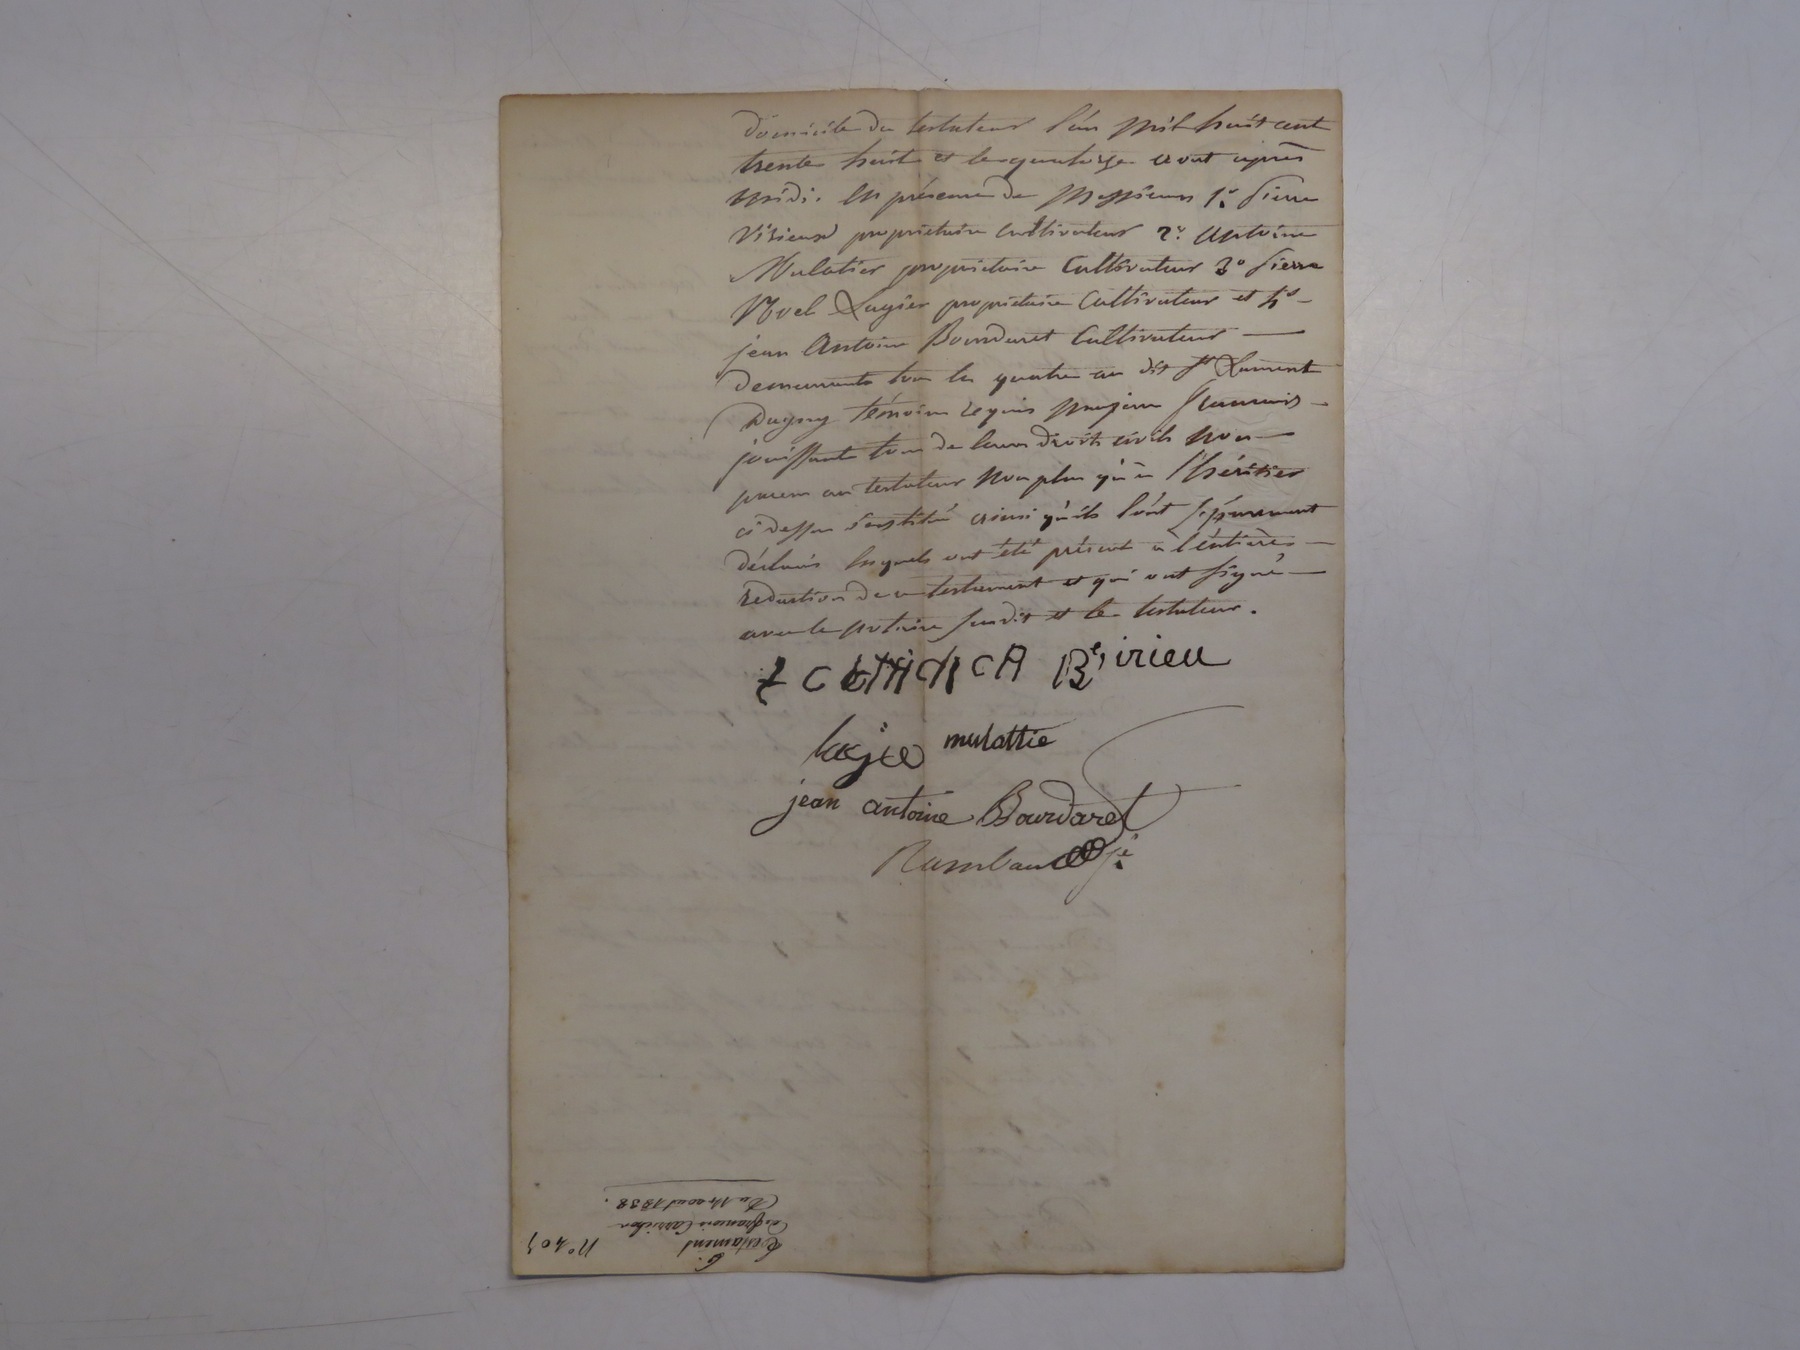 domicile du testateur l'an mil huit cent
trente huit et le quatorze aout après
midi. En présence de Messieurs 1º pierre
Virieux propriétaire cultivateur 2º Antoine
Mulatier propriétaire Cultivateur 3º pierre
Noel Lagier propriétaire Cultivateur et 4º
jean Antoine Bourdaret Cultivateur
demeurants tous les quatre au dit St Laurent
Dagny témoins requis majeurs francais
jouissants tous de leurs droits civils non
parens au testateur non plus qu'à l'héritier
ci dessus institué ainsi qu'ils l'ont séparément
déclaré lesquels ont été présent à l'entière
redaction de ce testament et qui ont signé
avec le notaire susdit et le testateur.
Virieu
lagie mulattie
jean antoine Bourdaret
Rambaud
Testament
Du 14 aout 1838.